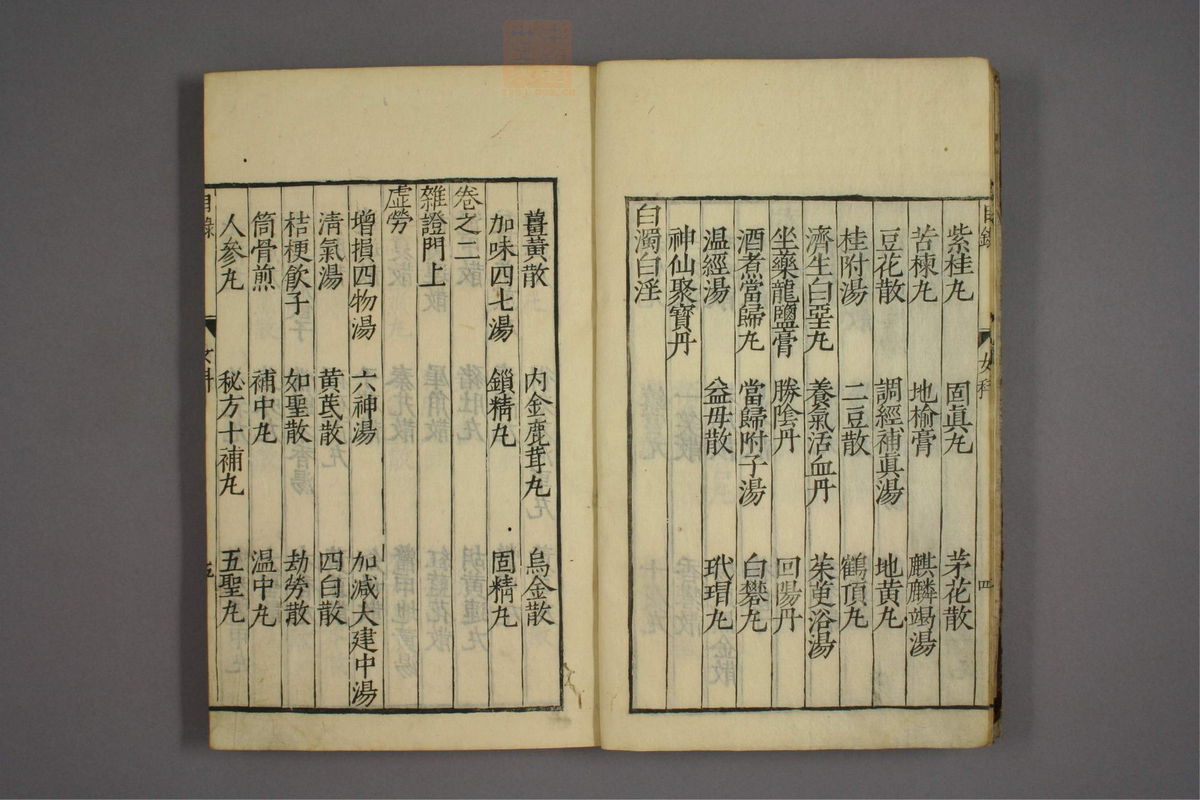 目錄 女科 四
紫桂丸 固眞丸 茅花散
苦楝丸 地榆膏 麒麟竭湯
豆花散 調經補眞湯 地黃丸
桂附湯 二豆散 鶴頂丸
濟生白堊丸 養氣活血丹 茱萸浴湯
坐藥龍鹽膏 勝陰丹 回陽丹
酒煮當歸丸 當歸附子湯 白礬丸
温經湯 益母散 玳瑁丸
神仙聚寶丹
白濁白淫
薑黃散 内金鹿茸丸 烏金散
加味四七湯 鎖精丸 固精丸
卷之二
雜證門上
虛勞
增損四物湯 六神湯 加減大建中湯
清氣湯 黄芪散 四白散
桔梗飲子 如聖散 劫勞散
筒骨煎 補中丸 温中丸
人參丸 秘方十補丸 五聖丸
目錄 女科 五